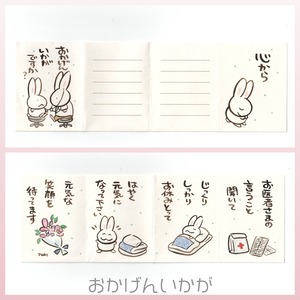 おかげん
いかが
ですか?
心から
お医者さまの
言うこと
聞いて
じっくり
しっかり
お休みとって
はやく
元気に
なって下さい
元気な
笑顔を
待ってます
おかげんいかが